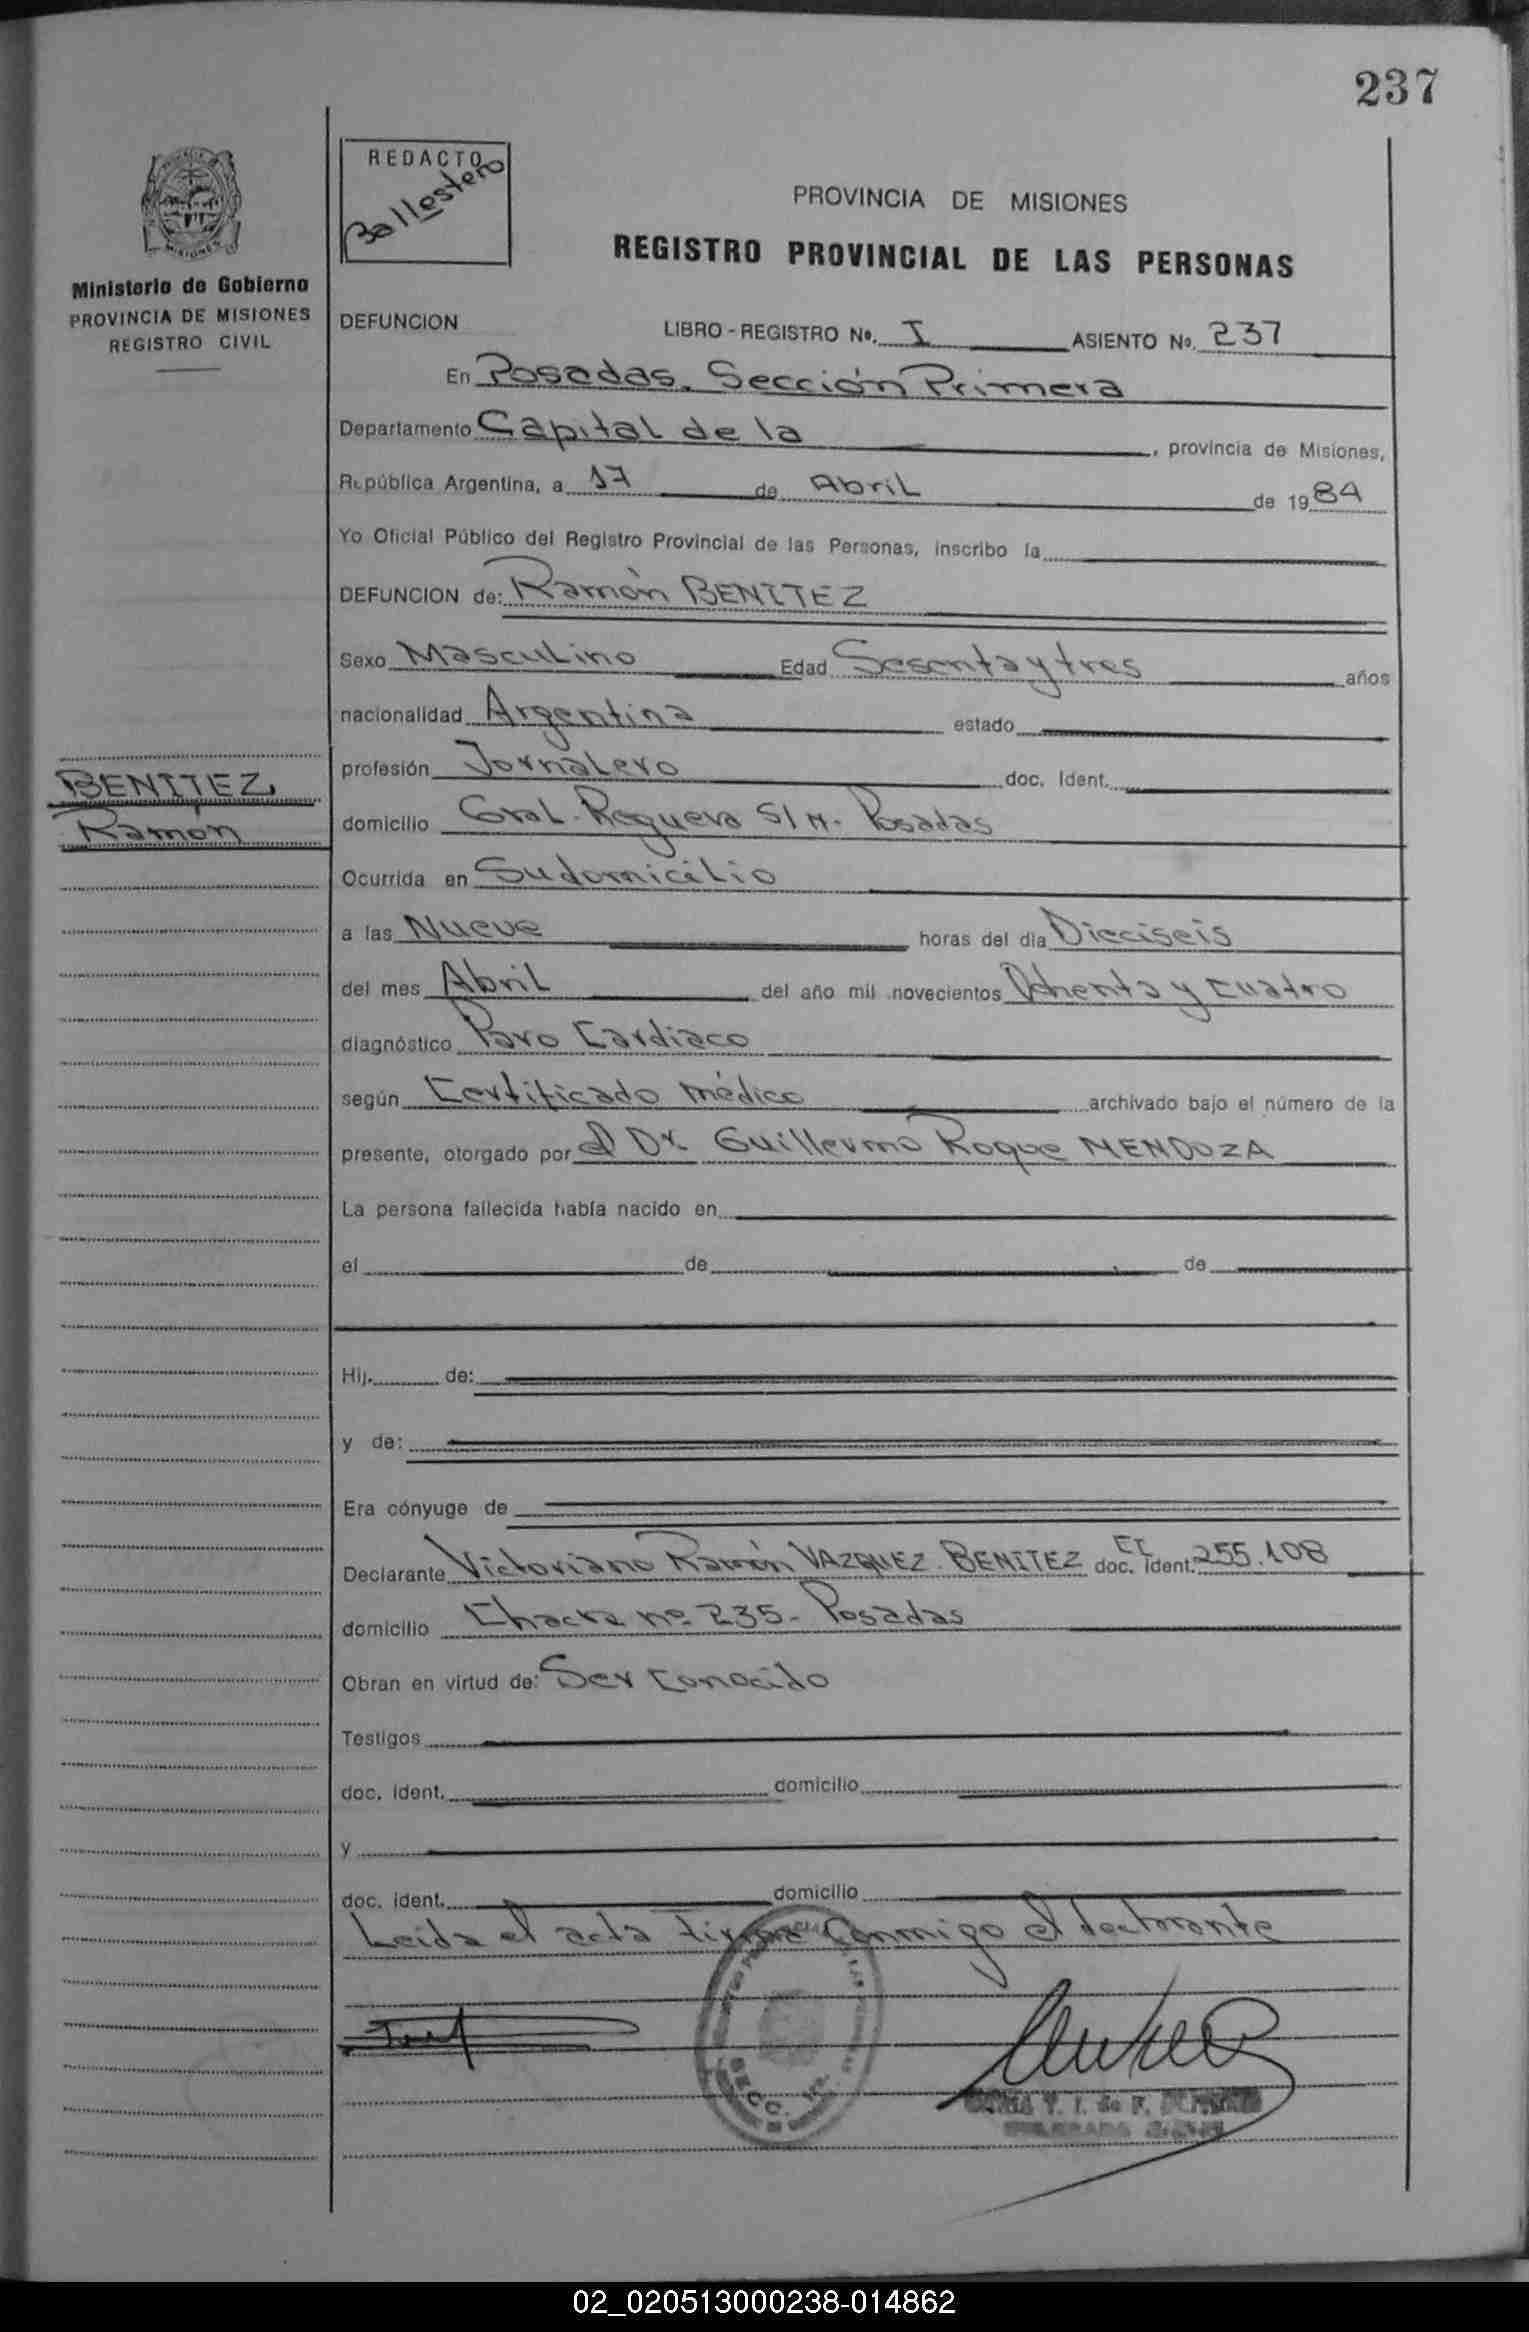 237
REDACTO
Ballestero
PROVINCIA DE MISIONES
REGISTRO PROVINCIAL DE LAS PERSONAS
Ministerio de Gobierno
PROVINCIA DE MISIONES
REGISTRO CIVIL
DEFUNCION LIBRO - REGISTRO Nº. I ASIENTO Nº. 237
En Posadas. Sección Primera
Departamento Capital de la , provincia de Misiones,
República Argentina, a 17 de Abril de 1984
Yo Oficial Público del Registro Provincial de las Personas, inscribo la
DEFUNCION de: Ramón BENITEZ
Sexo Masculino Edad Sesenta y tres años
nacionalidad Argentina estado
profesión Jornalero doc. Ident.
BENITEZ
Ramón
domicilio Gral. Reguera S/N. Posadas
Ocurrida en Su domicilio
a las Nueve horas del día Dieciseis
del mes Abril del año mil novecientos Ochenta y cuatro
diagnóstico Paro Cardiaco
según Certificado médico archivado bajo el número de la
presente, otorgado por el Dr. Guillermo Roque MENDOZA
La persona fallecida había nacido en
el de de
Hij. de:
y de:
Era cónyuge de
Declarante Victoriano Ramón VAZQUEZ BENITEZ doc. ident. CI 255.108
domicilio Chacra nº 235 - Posadas
Obran en virtud de: Ser conocido
Testigos
doc. ident. domicilio
y
doc. ident. domicilio
Leida el acta firma conmigo el declarante
SECC. 1ra.
02_020513000238-014862